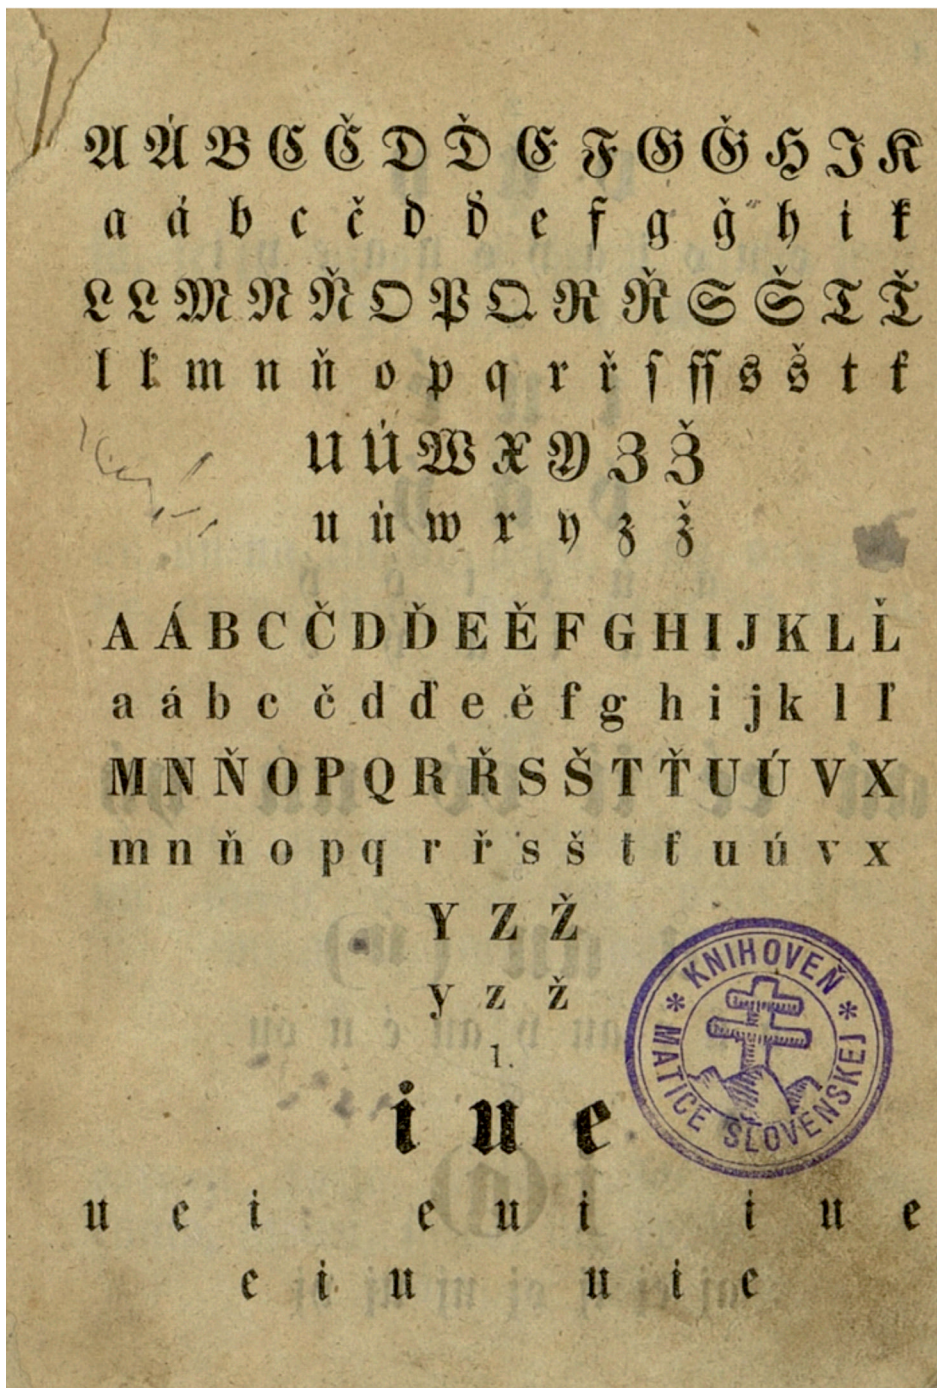 A Á B C Č D Ď E F G Ǧ H I K
a á b c č d ď e f g ǧ h i k
L L M N Ň O P Q R Ř S Š T Ť
l ľ m n ň o p q r ř ſ ſſ s š t ť
U Ú W X Y Z Ž
u ú w x y z ž
A Á B C Č D Ď E Ě F G H I J K L Ľ
a á b c č d ď e ě f g h i j k l ľ
M N Ň O P Q R Ř S Š T Ť U Ú V X
m n ň o p q r ř s š t ť u ú v x
Y Z Ž
y z ž
KNIHOVEŇ * MATICE SLOVENSKEJ *
1.
i u e
u e i e u i i u e
e i u u i e